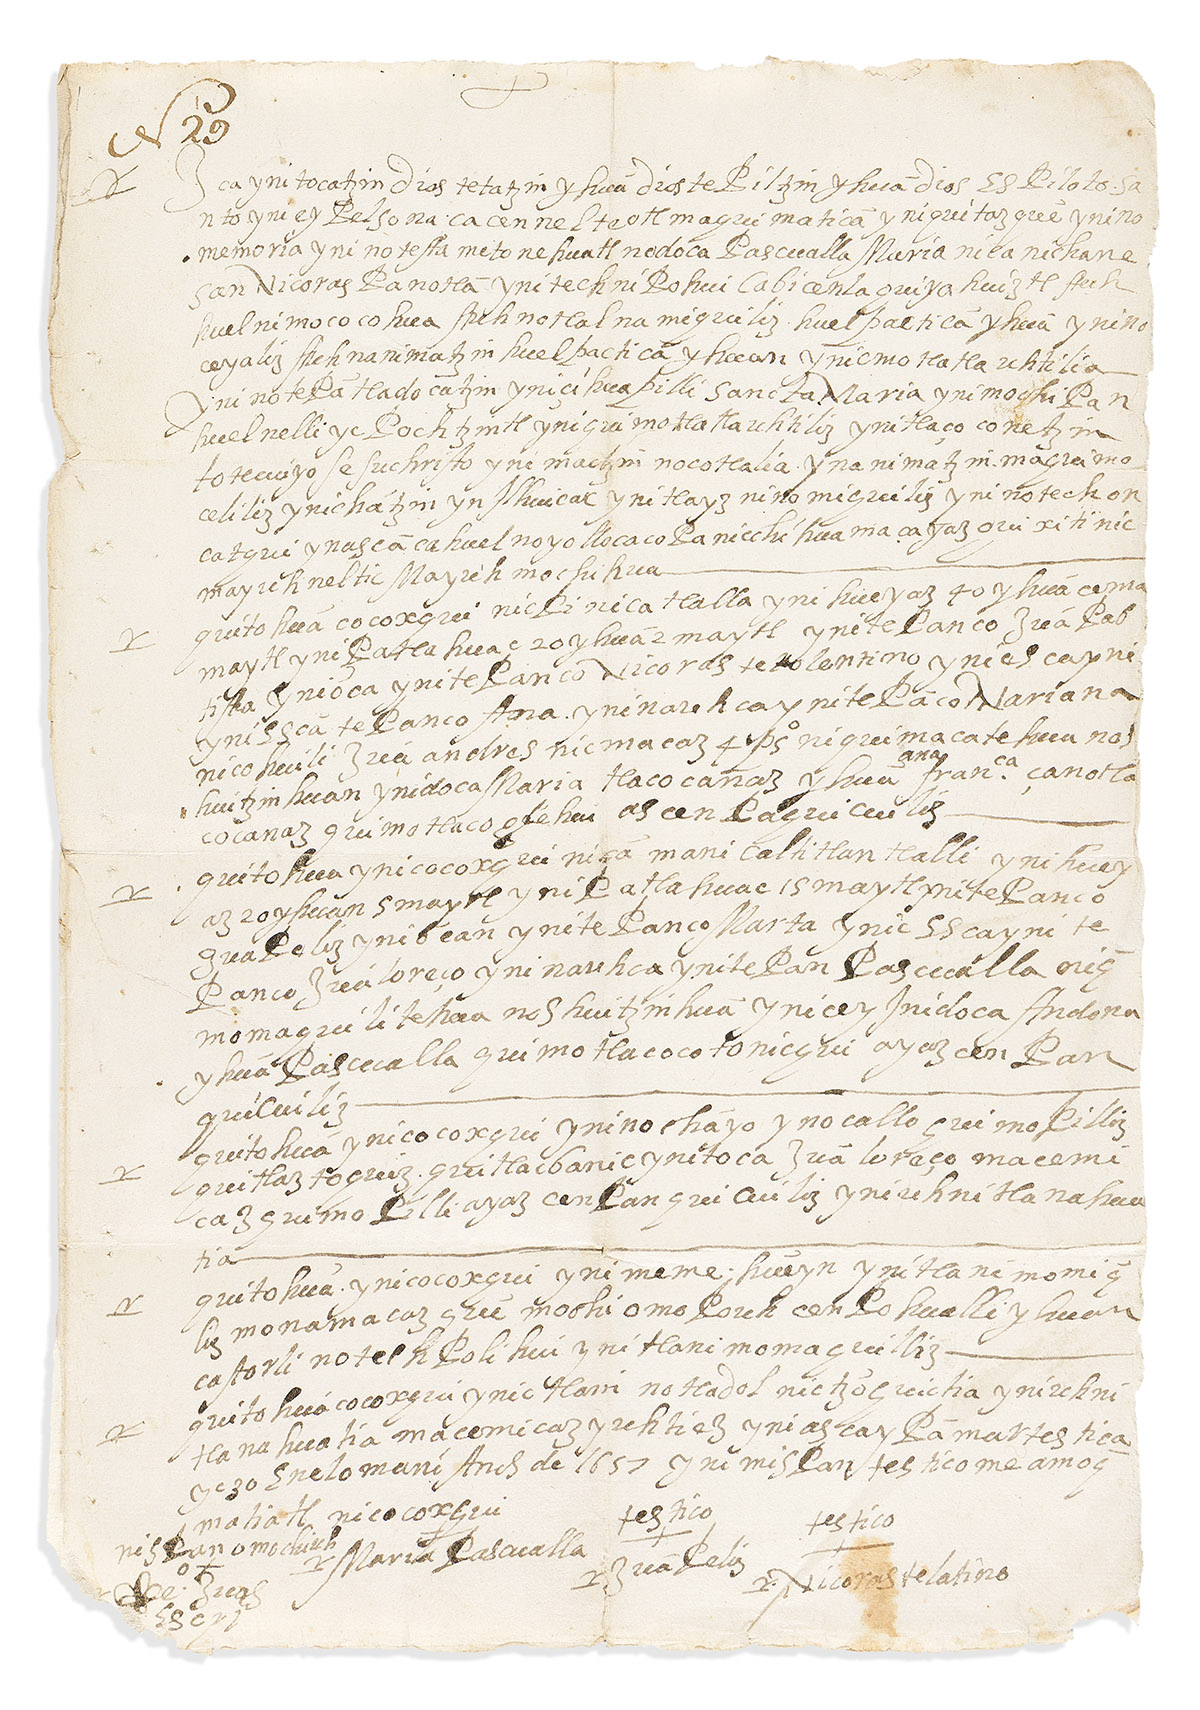 No 29
Jca ynitocatzin Dios tetatzin yhuā dios tePiltzin yhuā dios SsPiloto. sa
nto yni ey Pelsona. ca cen nelteotl maquimaticā yniquitazquē ynino
memoria yni no testameto nehuatl nodoca Pascualla Maria nica nichane
san Nicoras Panotlā ynitech niPohui Cabicenla quiyahuiztl auh
huel nimococohua auh notlalnamiquiliz. huel pacticā yhuā ynino
ceyaliz auh nanimatzin huel pacticā yhuan ynicmotlatlauhtilia
ynino tePātladocatzin yniçihuapilli sancta Maria ynimochiPan
huelnelli yc Pochtzintl yniquimotlatlauhtiliz ynitlaço conetzin
totecuiyo Jesuchristo yni mactzin nocotlalia. ynanimatzin. maquimo
celiliz ynichātzin yn ilhuicac ynitlayz nino miquiliz yni notech on
catqui ynascā ca huel noyollocacoPa nicchihua ma cayaz qui xitinic
mayuch neltic Mayuch mochihua
quitohuā cocoxqui nicPi nica tlalla yni hueyaz 40 yhuā cema
maytl yniPatlahuac 20 yhuā 2 maytl ynitePanco Juā Pab
tista yniōca ynitePanco Nicoras tetolentino ynicscayni
yniSscā tePanco Ana. yninauhca ynitePāco Mariana
nicohuili Juā andres nicmacaz 4 pso niquimacatehua nos
huitzinhuan ynidoca Maria tlacocanaz yhuā ana franca. çanotla
cocanaz quimotlacoqlehui as cen Paquicuiliz
quitohua ynicocoxqui nicā mani Caltitlantlalli yni huey
az 20 yhuan 5 maytl yniPatlahuac 15 maytl ynitePanco
JuāPeliz yniocan ynitePanco Marta ynicSscayni te
Panco Juā loreço yninauhca ynitePan Pascualla niq̄
momaquilitehua noshuitzinhuā ynicey Jnidoca Andona
yhuā Pascualla quimotlacocotonicqui ayaz cen Pan
quiCuiliz
quitohuā ynicocoxqui ynino chāyo ynocallo quimoPilliz
quitlaztoquiz. quitlacbanic ynitoca Juā loreço macemi
caz quimo Pilli. ayaz cenPanquiCuiliz yniuhnitlanahua
tia
quitohuā. ynicocoxqui yni meme. hueyn ynitlanimomiq̄
liz monamacaz quē mochi omoPouh cen Pohualli yhuan
castorli notech Polihui ynitlanimomaquilliz
quitohuā cocoxqui ynictlani notladol nictzoquictia yniuhni
tlanahuatia macemicaz yuhtiez yniascayPā martes tica
yc 30 Enelo mani Anos de 1657 ynimisPan testicome amoq̄
matiatl nicocoxqui
nisPan omochiuh
Maria Pascualla
testico
JuāPeliz
testico
Nicoras telatino